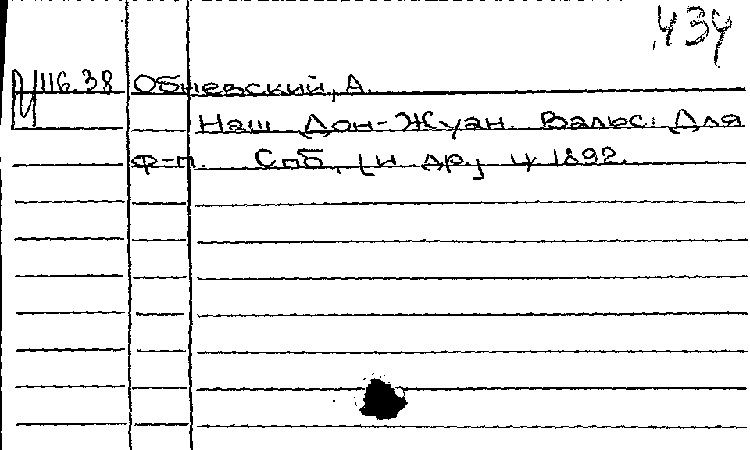 434
116.38 Обневский, А.
Наш Дон-Жуан. Вальс. Для
ф-п. Спб, [и др]
1892.